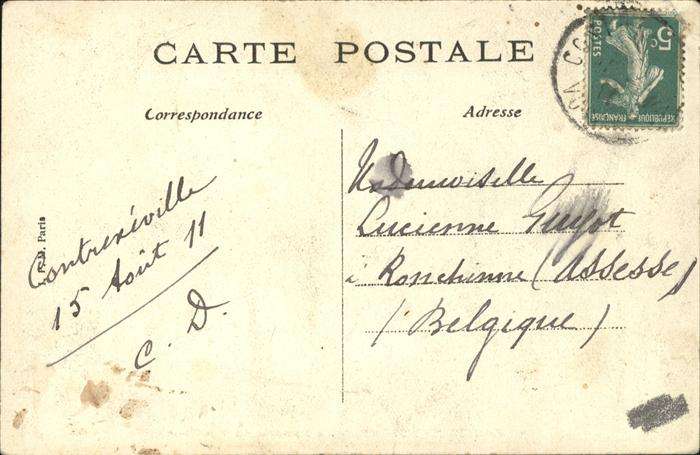 CARTE POSTALE
Correspondance
Adresse
5c
POSTES
RÉPUBLIQUE FRANÇAISE
Paris
Contrexéville
15 Août 11
C. D.
Mademoiselle
Lucienne Guyot
à Ronchinne (Assesse)
(Belgique)